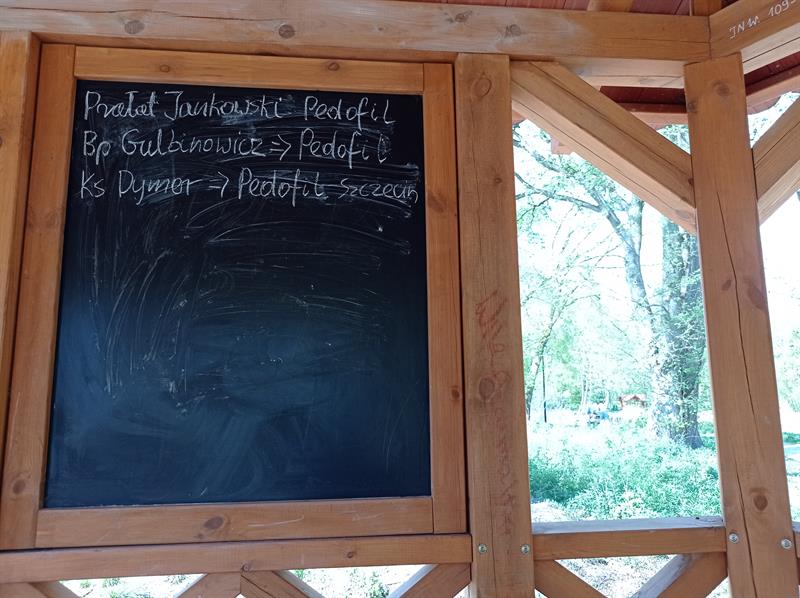 Prałat Jankowski Pedofil
Bp Gulbinowicz => Pedofil
Ks Dymer => Pedofil Szczecin
JNW. 109